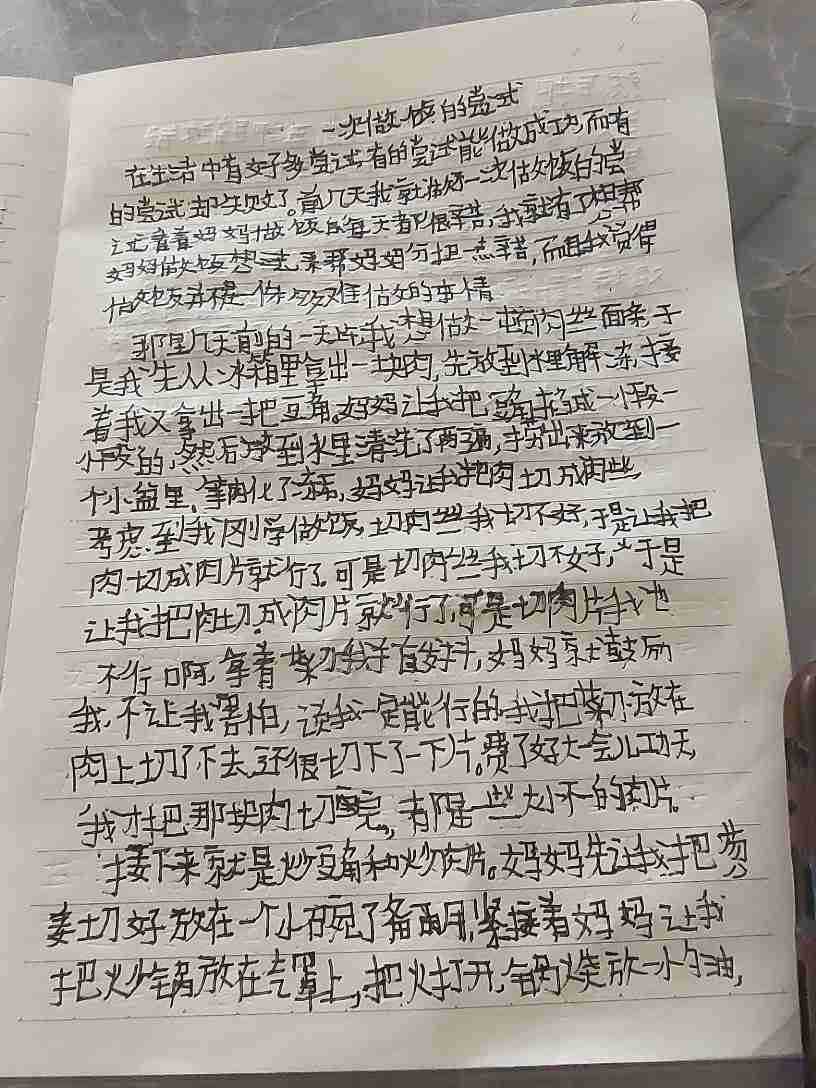 一次做饭的尝试
在生活中有好多尝试,有的尝试能做成功,而有
的尝试却失败了。前几天我就准备一次做饭的尝
试,看着妈妈做饭每天都很辛苦,我就有了想帮
妈妈做饭想法,来帮妈妈分担一点辛苦,而且我觉得
做饭并不是一件多难做的事情
那是几天前的一天晚,我想做一顿肉丝面条,于
是我先从冰箱里拿出一块肉,先放到水里解冻,接
着我又拿出一把豆角。妈妈让我把豆角掐成一小段一
小段的,然后放到水里清洗了两三遍,捞出来放到一
个小盆里,等肉化了冻后,妈妈让我把肉切成肉丝,
考虑到我刚学做饭,切肉丝我切不好,于是让我把
肉切成肉片就行了可是切肉丝我切不好,于是
让我把肉切成肉片就行了,可是切肉片我也
不行啊,拿着菜刀我手直发抖,妈妈就鼓励
我,不让我害怕,说我一定能行的,我把菜刀放在
肉上切了下去,还很切下了一下片。费了好大一会儿功夫,
我才把那块肉切完,都是一些大小不一的肉片。
接下来就是炒豆角和炒肉片。妈妈先让我把葱
姜切好放在一个小碗了备用,紧接着妈妈让我
把炒锅放在气罩上,把火打开,锅烧放一小勺油,